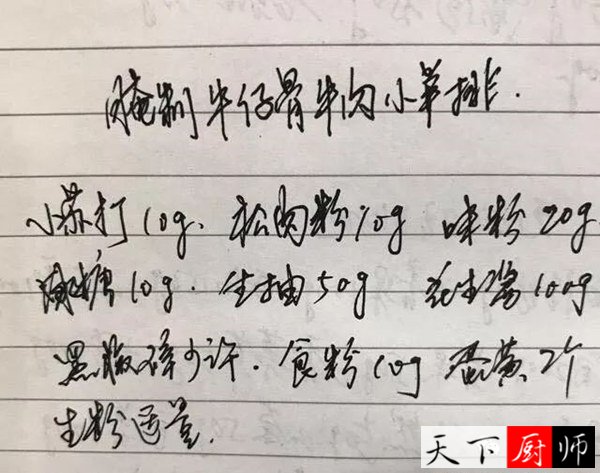 腌制牛仔骨牛肉小羊排.
小苏打10g. 松肉粉10g 味粉20g
砂糖10g. 生抽50g 花生酱100g
黑椒碎少许. 食粉10g 蛋黄2个
生粉适量.
天下厨师